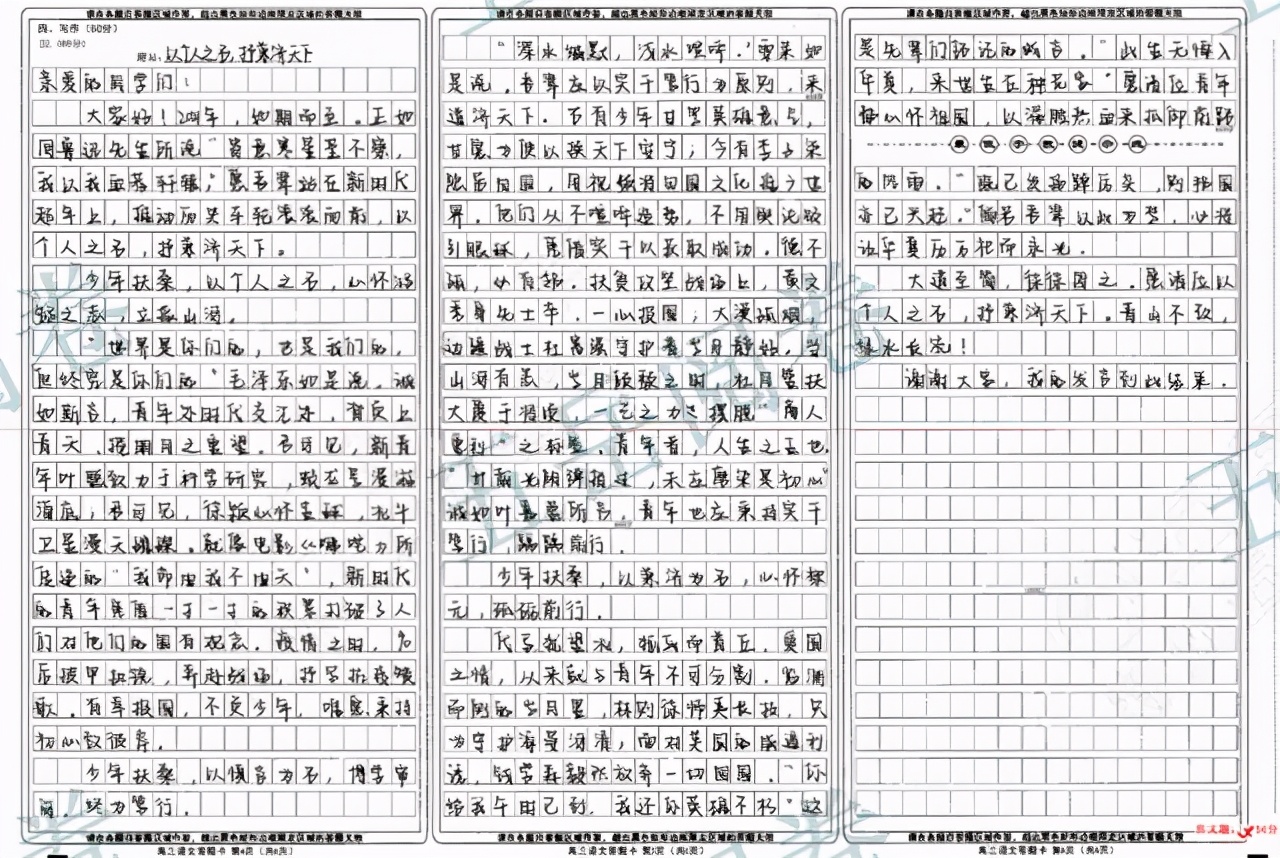 请在各题目的答题区域内作答，超出黑色矩形边框限定区域的答案无效
四、写作（60分）
22.（60分）
题目：以个人之名，抒兼济天下
亲爱的同学们：
大家好！2021年，如期而至。正如
同鲁迅先生所说“寄意寒星荃不察，
我以我血荐轩辕，”愿吾辈站在新时代
起年上，推动历史车轮滚滚向前，以
个人之名，抒兼济天下。
少年扶桑，以个人之名，心怀鸿
鹄之志，立象山海。
“世界是你们的，也是我们的，
但终究是你们的”毛泽东如是说。诚
如斯言，青年处时代交汇处，背负上
青天、授周月之重望。君可见，新青
年叶聪致力于科学研究，蛟龙号漫游
海底；君可见，徐颖心怀，北斗
卫星漫天。就像电影《哪吒》所
的“我命由我不由天”，新时代
的青年一寸一寸的打破了人
们对他们的固有观念。疫情之时，90
后披甲执锐，奔赴战场，抒写抗疫颂
歌。有幸报国，不负少年，唯愿秉持
初心致彼岸。
少年扶桑，以慎言为名，博学审
问。终为笃行。
请在各题目的答题区域内作答，超出黑色矩形边框限定区域的答案无效
高三语文答题卡 第4页（共6页）
请在各题目的答题区域内作答，超出黑色矩形边框限定区域的答案无效
“深水缄默，浅水喧哗。”蒙莱如
是说。吾辈应以实干笃行为原则，兼
道济天下。古有少年甘罢英雄意气，
甘愿为使以换天下安宁；今有李子柒
隐居田园，用视频将中国文化推之世
界。他们从不喧哗造势，不用舆论吸
引眼球，愿信实干以获取成功。德不
孤，必有邻。扶贫攻坚战场上，黄文
秀身先士卒，一心报国；大漠孤烟，
边疆战士杜富国守护着岁月静好。当
山河有恙，岁月颓败之时，杜月笙扶
大厦于将倾，一己之力摆脱“商人
重利”之标签。青年者，人生之王也
“甘霜光阴弹指过，未应磨染是初心”
诚如叶嘉莹所言，青年也应秉持实干
笃行，踽踽前行。
少年扶桑，以兼济为名，心怀黎
元，砥砺前行。
代马望北，狐死首丘，爱国
之情，从来就与青年不可分割。
的岁月里，林则徐师夷长技，只
为守护海晏河清；面对美国的威逼利
诱，钱学森毅然放弃一切回国。“你
给我午时已到，我还你英雄不朽”这
请在各题目的答题区域内作答，超出黑色矩形边框限定区域的答案无效
高三语文答题卡 第5页（共6页）
请在各题目的答题区域内作答，超出黑色矩形边框限定区域的答案无效
是先辈们铭记的箴言。“此生无悔入
华夏，来世生在种花家”愿诸位青年
都心怀祖国，以满腔热血来抵御前路
的风雨。“既已登顶踔厉矣，则报国
亦已矣。”愿君吾辈以此为梦，必将
让华夏历万祀而永光。
大道至简，徐徐图之。愿诸位以
个人之名，抒兼济天下。青山不改，
绿水长流！
谢谢大家，我的发言到此结束。
请在各题目的答题区域内作答，超出黑色矩形边框限定区域的答案无效
高三语文答题卡 第6页（共6页）
五岳阅卷